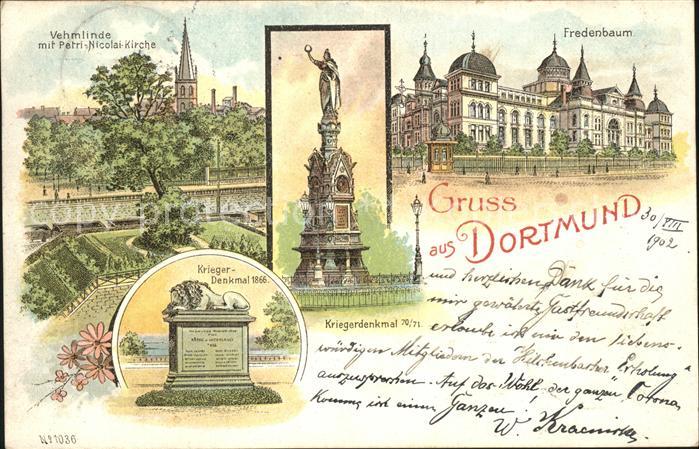 Vehmlinde
mit Petri-Nicolai-Kirche
Fredenbaum
Krieger-
Denkmal 1866.
Kriegerdenkmal 70/71.
Gruss
aus DORTMUND
30/VIII
1902
und herzlichen Dank für die
mir gewährte Gastfreundschaft
erlaube ich mir den liebens-
würdigen Mitgliedern der Hilchenbacher "Erholung"
auszusprechen. Auf das Wohl der ganzen Corona
komme ich einen Ganzen!
W.
No 1036